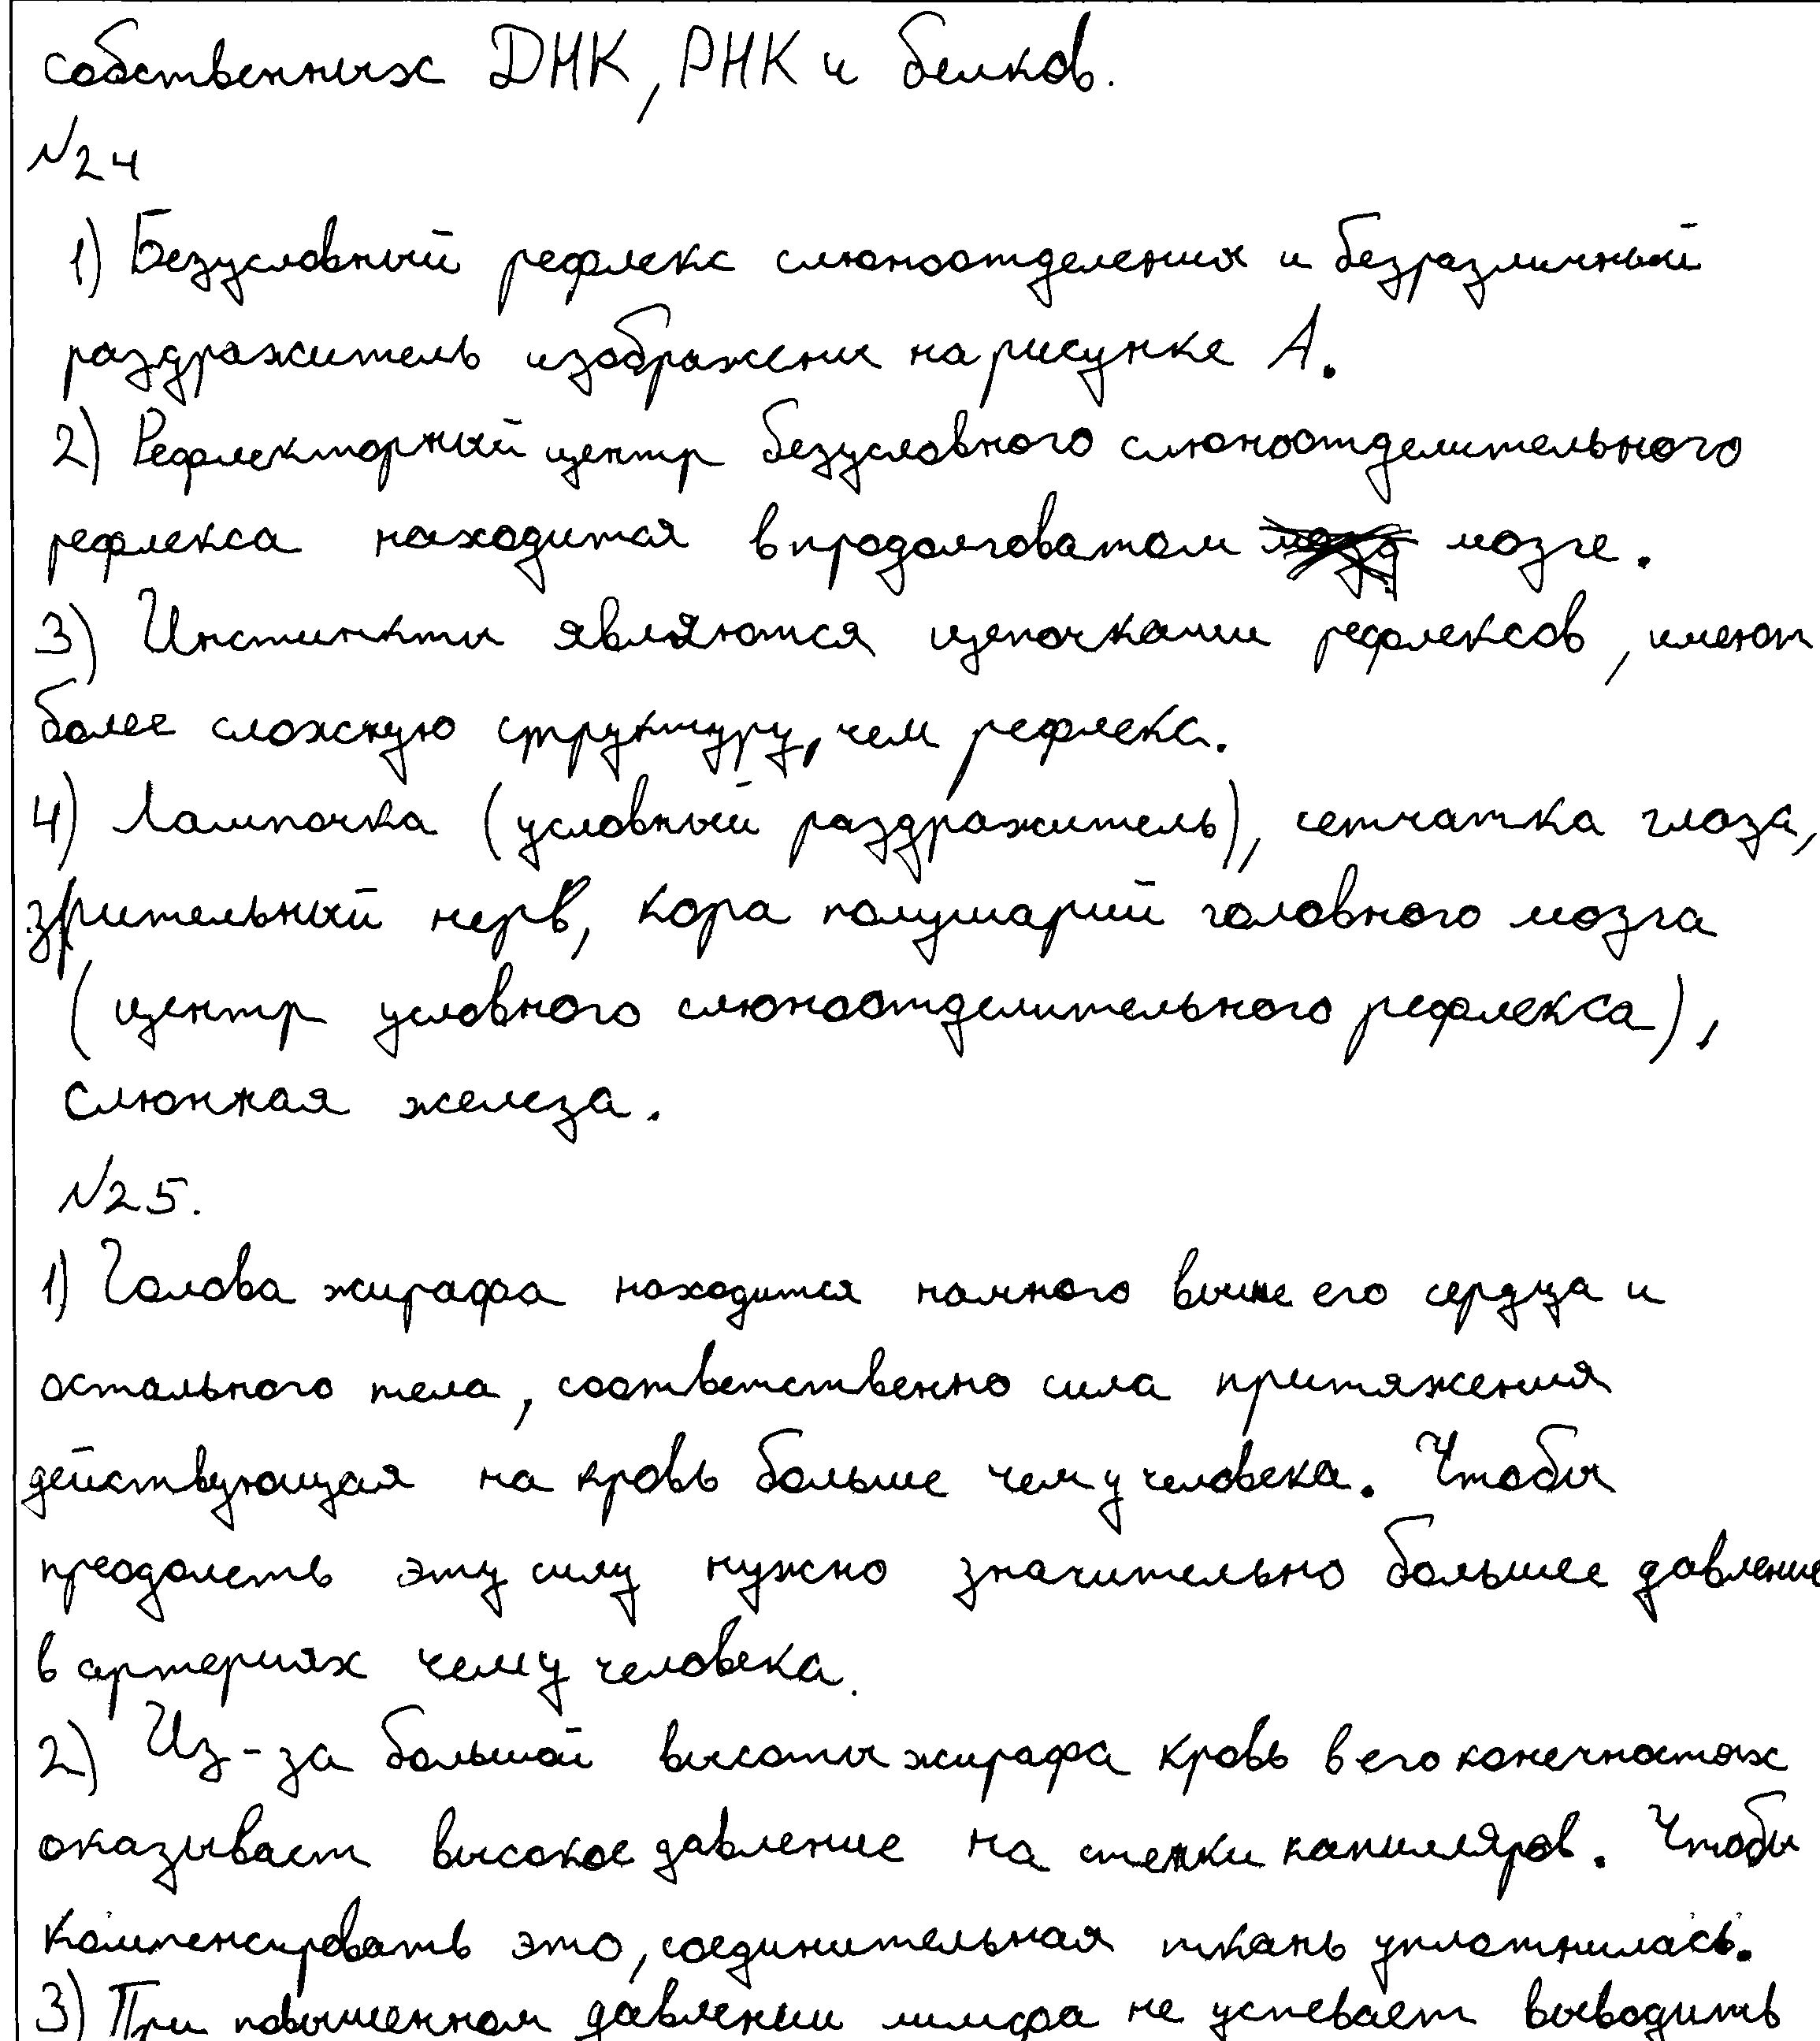 собственных ДНК, РНК и белков.
№24
1) Безусловный рефлекс слюноотделения и безразличный
раздражитель изображены на рисунке А.
2) Рефлекторный центр безусловного слюноотделительного
рефлекса находится в продолговатом мозге.
3) Инстинкты являются цепочками рефлексов, имеют
более сложную структуру, чем рефлекс.
4) Лампочка (условный раздражитель), сетчатка глаза,
зрительный нерв, кора полушарий головного мозга
(центр условного слюноотделительного рефлекса),
слюнная железа.
№25.
1) Голова жирафа находится намного выше его сердца и
остального тела, соответственно сила притяжения
действующая на кровь больше чем у человека. Чтобы
преодолеть эту силу нужно значительно большее давление
в артериях чем у человека.
2) Из-за большой высоты жирафа кровь в его конечностях
оказывает высокое давление на стенки капилляров. Чтобы
компенсировать это, соединительная ткань уплотнилась.
3) При повышенном давлении лимфа не успевает выводить